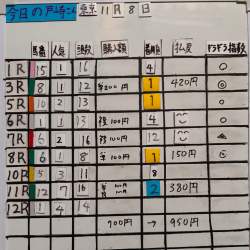 今日の戸崎こん 東京 11月8日
馬番 人気 頭数 購入額 着順 払戻 ドキドキ指数
1R 15 1 16 4 〇
3R 8 1 12 単200円 1 420円 ◎
5R 10 2 13 1 〇
6R 1 1 13 複100円 4 〇
7R 6 2 16 複100円 12
8R 6 1 8 単100円 1 150円
10R 5 3 11 8
11R 12 7 16 2 380円
12R 1 4 14
700円 → 950円